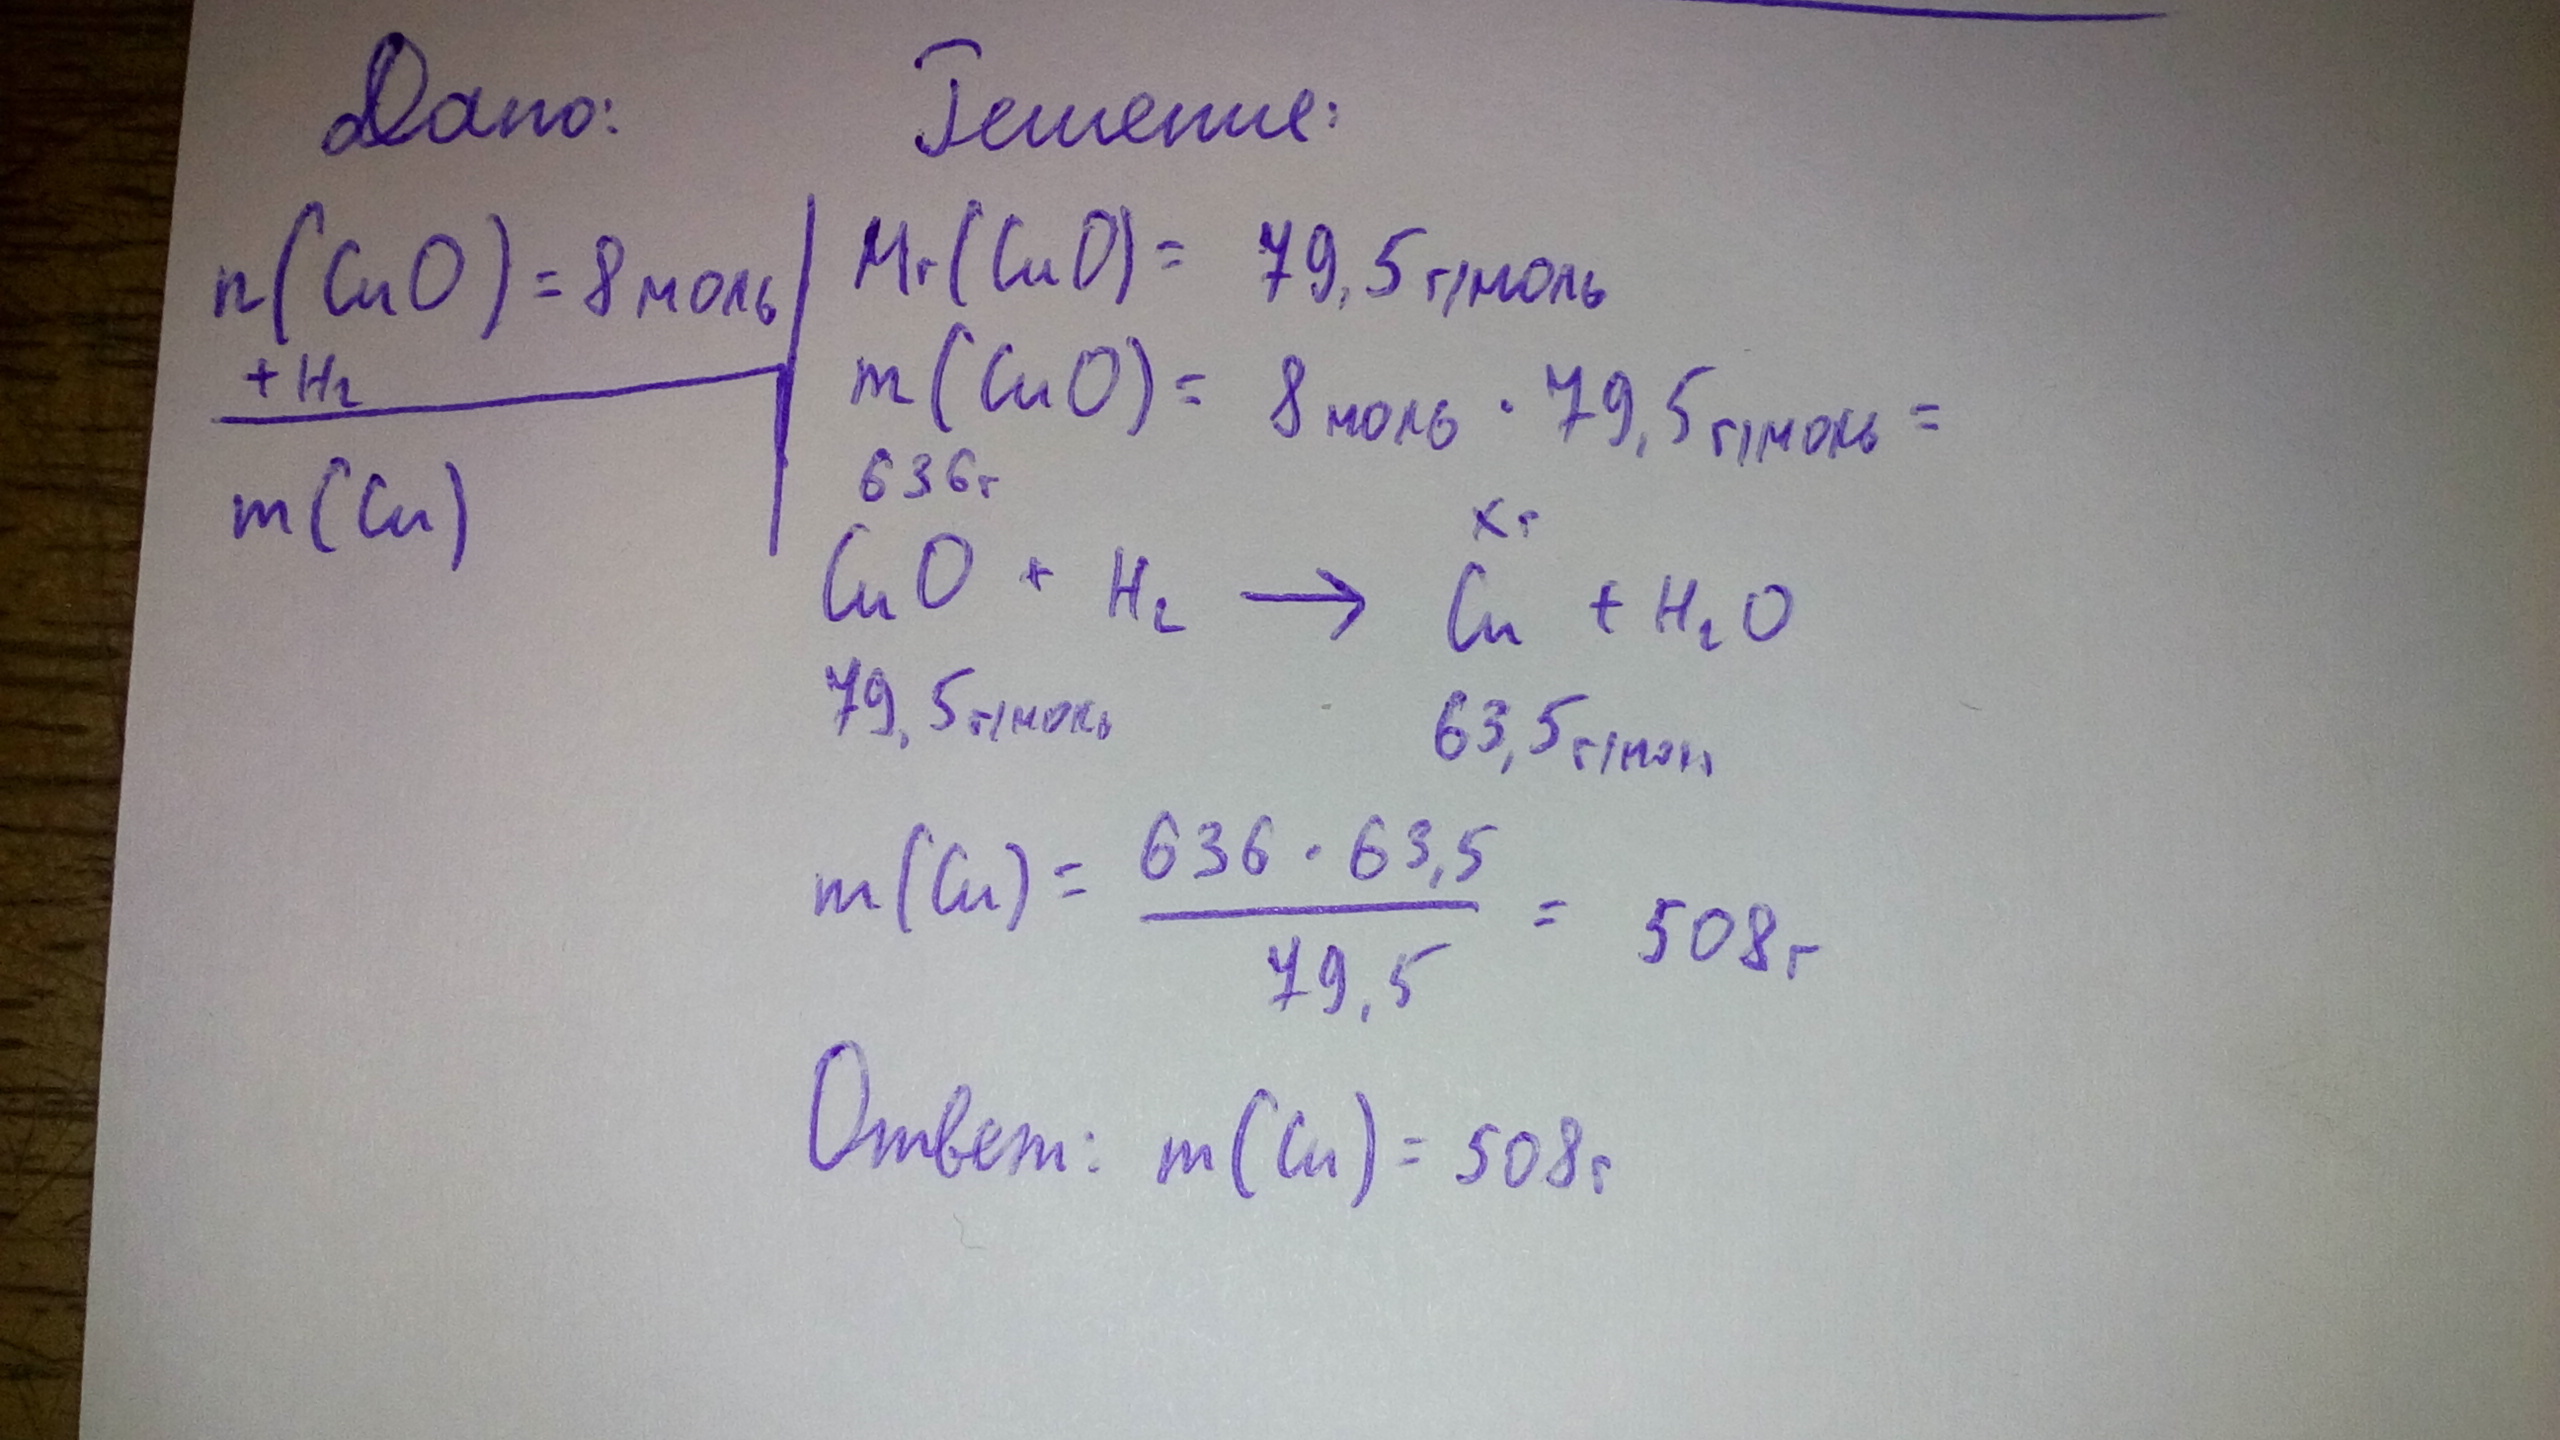 Дано:
n(CuO) = 8 моль
+ H₂
m(Cu)
Решение:
Mr(CuO) = 79,5 г/моль
m(CuO) = 8 моль · 79,5 г/моль =
636г
xг
CuO + H₂ → Cu + H₂O
79,5 г/моль 63,5 г/мол
m(Cu) = 636 · 63,5 / 79,5 = 508г
Ответ: m(Cu) = 508г